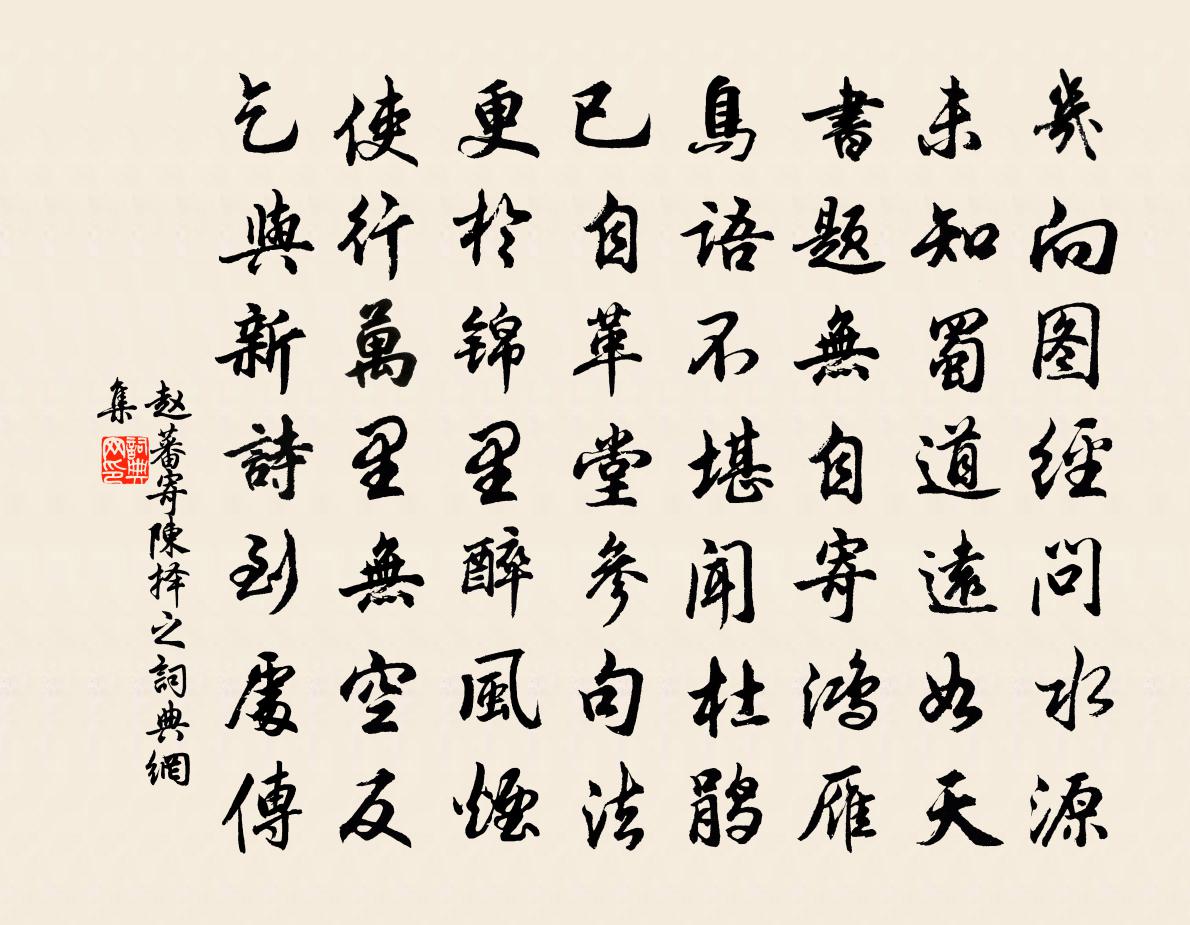 幾向图經問水源
未知蜀道遠如天
書題無自寄鴻雁
鳥語不堪聞杜鹃
已自草堂參句法
更於锦里醉風煙
使行萬里無空反
乞與新詩到處傳
赵蕃寄陳择之詞典網
集
詞典
网印